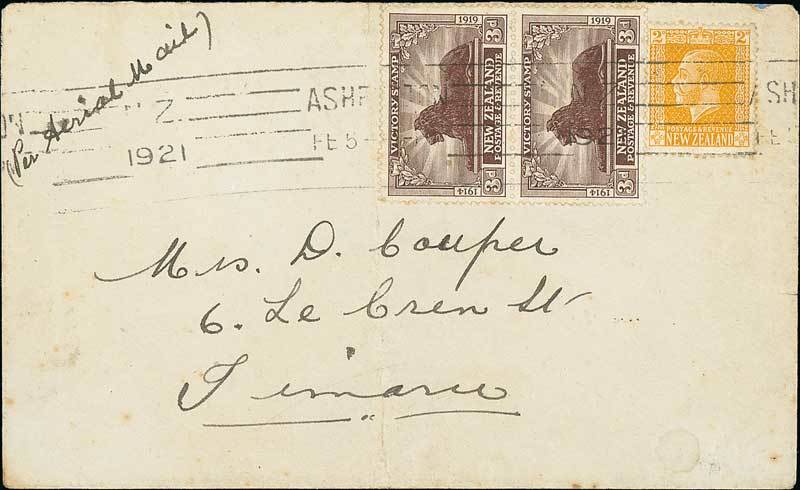 (Per Aerial Mail)
N.Z.
1921
ASHB
FE 5
1919
3d
VICTORY STAMP
NEW ZEALAND
POSTAGE & REVENUE
1914
3d
1919
3d
VICTORY STAMP
NEW ZEALAND
POSTAGE & REVENUE
1914
3d
2d
POSTAGE & REVENUE
NEW ZEALAND
ASH
Mrs. D. Couper
6. Le Cren St
Timaru